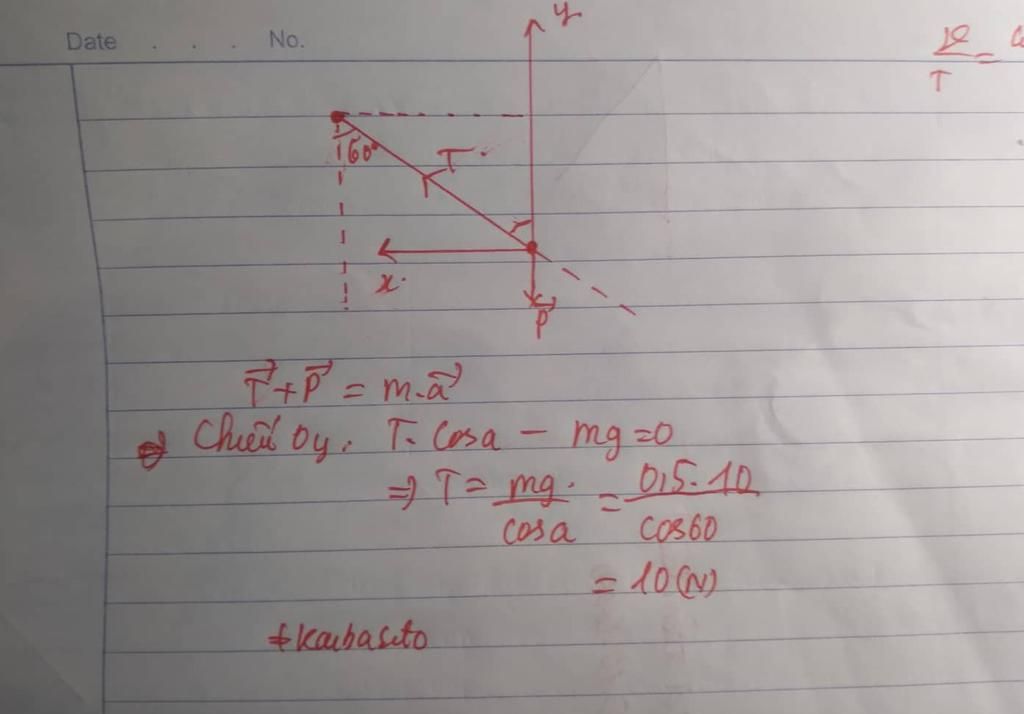 Date . . . No.
y
T
60°
T
x
P⃗
T⃗ + P⃗ = m.a⃗
=> Chiếu Oy. T. cosa - mg = 0
=> T = mg / cosa = 0,5.10 / cos60
= 10 (N)